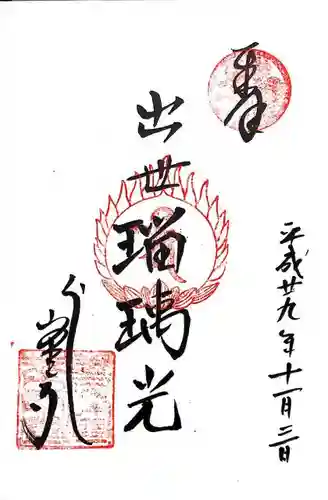 奉
平成廿九年十一月二日
出世瑠璃光